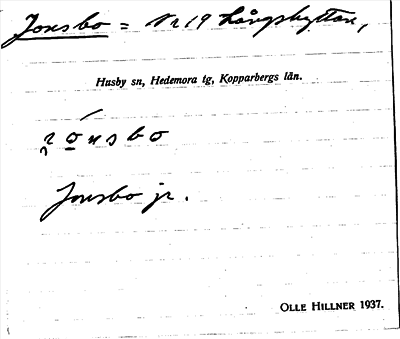 Jonsbo = Nr 19 Långshyttan,
Husby sn, Hedemora tg, Kopparbergs län.
Jonsbo jr.
OLLE HILLNER 1937.